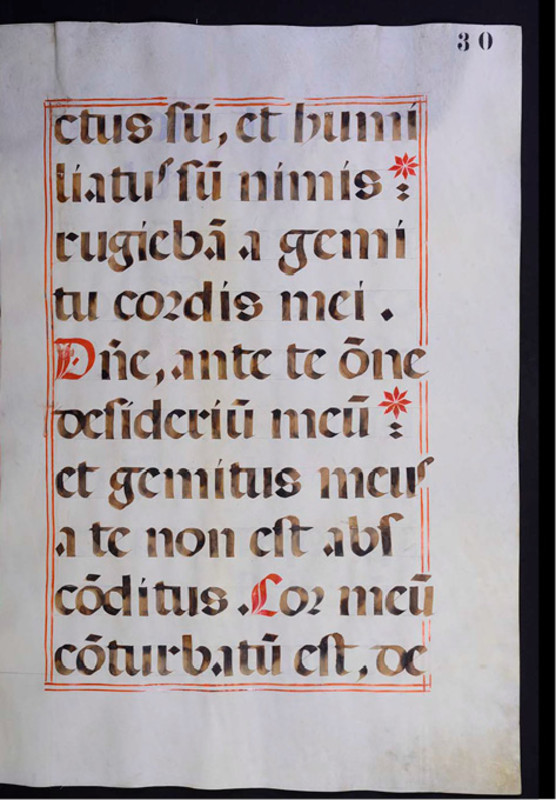 30
ctus sū, et humi
liatus sū nimis *:
rugiebā a gemi
tu cordis mei .
Dn̄e, ante te ōne
desideriū meū *:
et gemitus meus
a te non est abs
cōditus . Cor meū
cōturbatū est, de